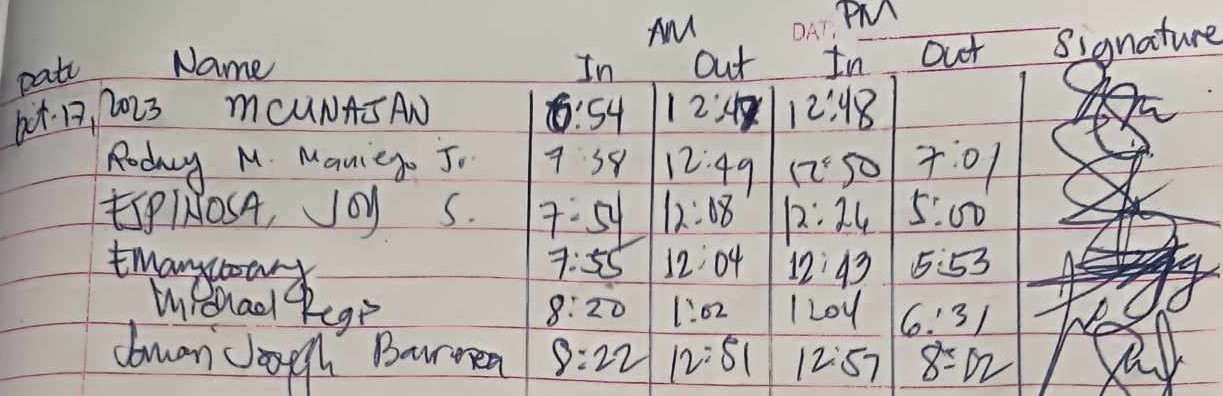 AM DATE PM
Date Name In Out In Out Signature
Oct. 17, 2023 MCUNAJAN 6:54 12:47 12:48
Rodney M. Maniego Jr. 7:38 12:49 12:50 7:01
ESPINOSA, JOY S. 7:54 12:08 12:26 5:00
7:55 12:04 12:43 5:53
Michael Regis 8:20 1:02 1:04 6:31
Joseph 8:22 12:51 12:57 8:02